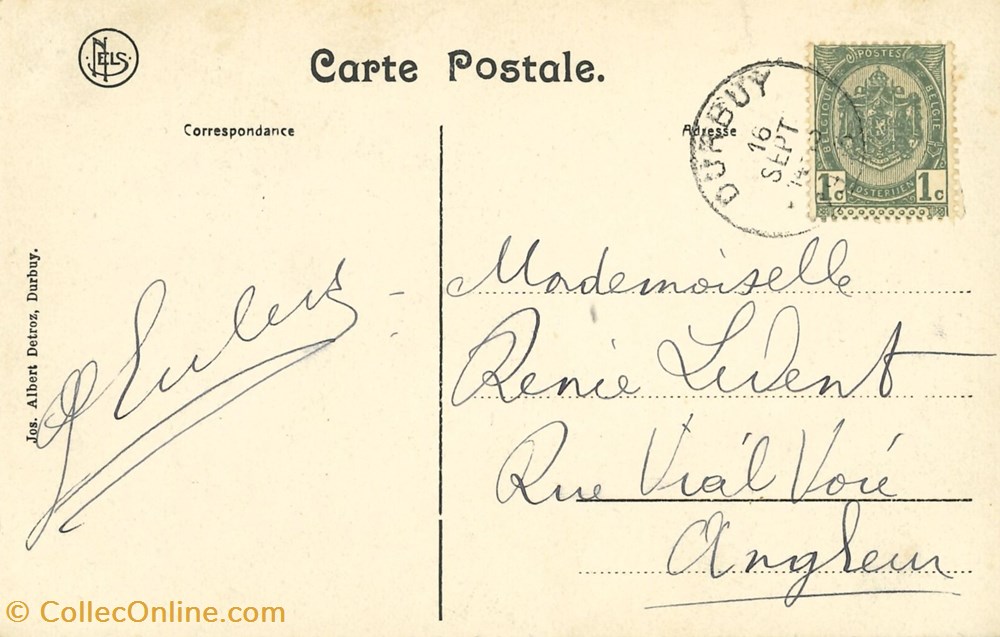 NELS
Carte Postale.
Correspondance
Adresse
DURBUY
16
SEPT
POSTES
BELGIQUE
BELGIË
POSTERIJEN
1c 1c
Jos. Albert Detroz, Durbuy.
Mademoiselle
Renée Lident
Rue Vial Voie
Angleur
© CollecOnline.com